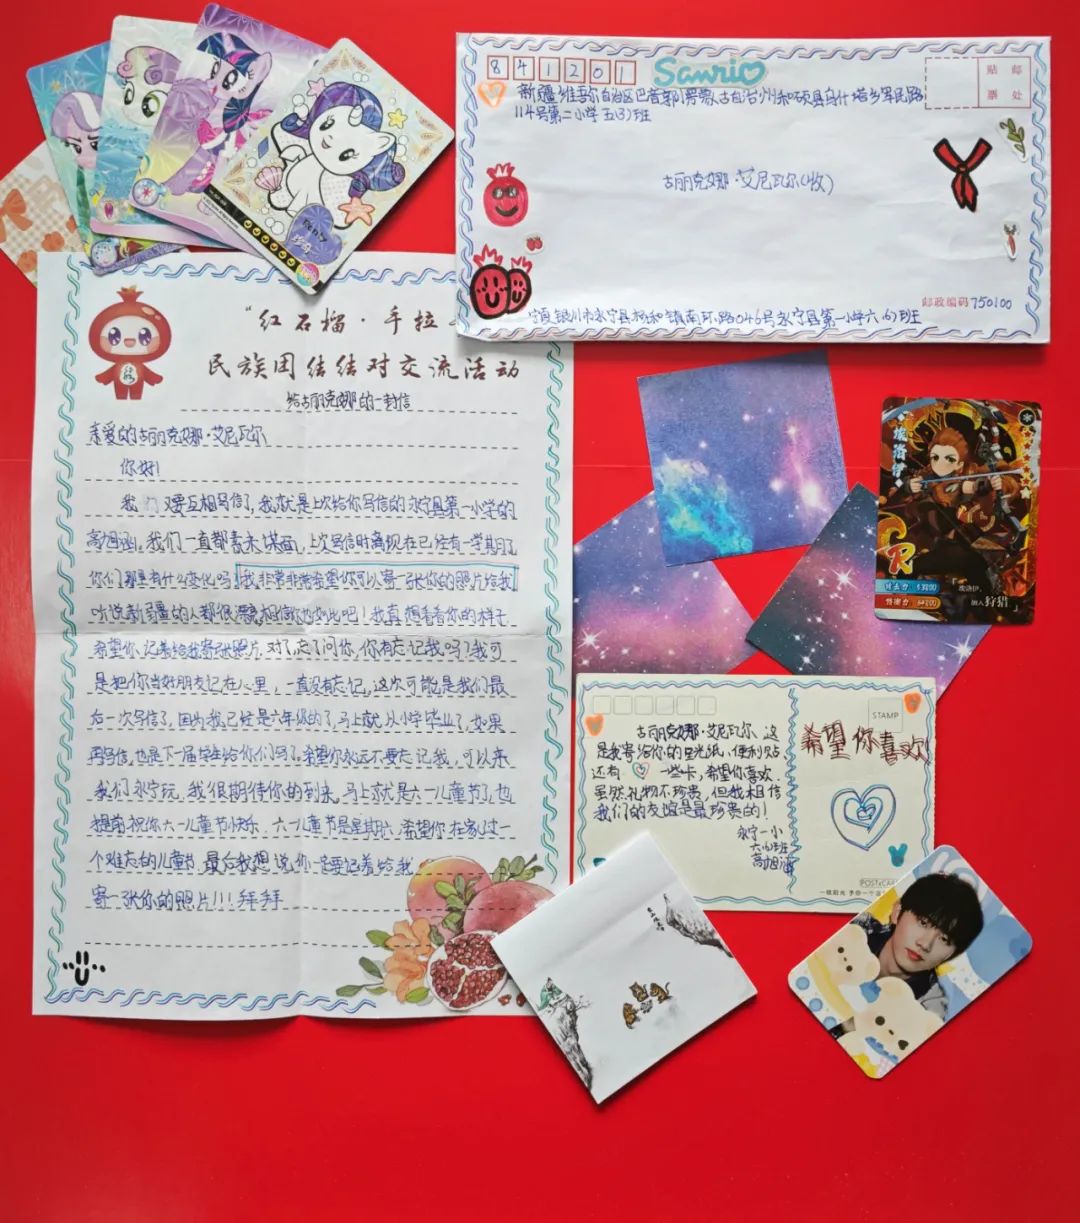 841201
Sanrio
贴 邮
票 处
新疆维吾尔自治区巴音郭楞蒙古自治州和硕县乌什塔乡军民路
114号第二小学五(3)班
古丽克娜·艾尼瓦尔(收)
邮政编码750100
宁夏银川市永宁县杨和镇南环路046号永宁县第一小学六(6)班
“红石榴·手拉
民族团结结对交流活动
给古丽克娜的一封信
亲爱的古丽克娜·艾尼瓦尔
你好!
我 又要互相写信了,我就是上次给你写信的永宁县第一小学的
高旭涵,我们一直都素未谋面,上次写信时离现在已经有一学期了
你们那里有什么变化吗!我非常非常希望你可以寄一张你的照片给我
听说新疆的人都很漂亮,相信你也如此吧!我真想看看你的样子
希望你记着给我寄张照片,对了,忘了问你,你有忘记我吗?我可
是把你当好朋友记在心里,一直没有忘记,这次可能是我们最
后一次写信了,因为我已经是六年级的了,马上就从小学毕业了,如果
再写信,也是下一届学生给你们写了,希望你永远不要忘记我,可以来
我们永宁玩,我很期待你的到来,马上就是六一儿童节了,也
提前祝你六一儿童节快乐,六一儿童节是星期六,希望你在家过一
个难忘的儿童节,最后我想说,你一定要记着给我
寄一张你的照片!!!拜拜
埃洛伊
R
攻击力
防御力
「埃洛伊,
加入狩猎」
STAMP
古丽克娜·艾尼瓦尔,这
是我寄给你的星光纸,便利贴
还有 一些卡,希望你喜欢
虽然礼物不珍贵,但我相信
我们的友谊是最珍贵的!
永宁一小
六(6)班
高旭涵
希望你喜欢
POSTCARD